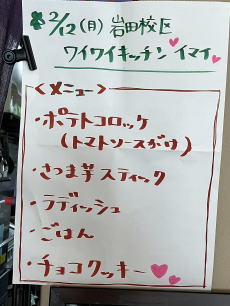 2/12(月)岩田校区
ワイワイキッチンイマイ
<メニュー>
・ポテトコロッケ
(トマトソースがけ)
・さつま芋スティック
・ラディッシュ
・ごはん
・チョコクッキー